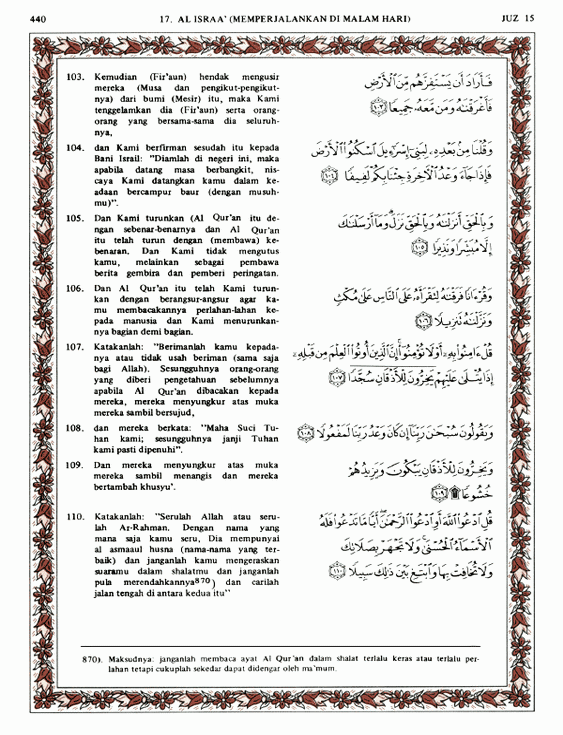 440 17. AL ISRAA' (MEMPERJALANKAN DI MALAM HARI) JUZ 15
103. Kemudian (Fir'aun) hendak mengusir
mereka (Musa dan pengikut-pengikut-
nya) dari bumi (Mesir) itu, maka Kami
tenggelamkan dia (Fir'aun) serta orang-
orang yang bersama-sama dia seluruh-
nya,
فَأَرَادَ أَن يَسْتَفِزَّهُم مِّنَ ٱلْأَرْضِ
فَأَغْرَقْنَٰهُ وَمَن مَّعَهُۥ جَمِيعًا ١٠٣
104. dan Kami berfirman sesudah itu kepada
Bani Israil: "Diamlah di negeri ini, maka
apabila datang masa berbangkit, nis-
caya Kami datangkan kamu dalam ke-
adaan bercampur baur (dengan musuh-
mu)".
وَقُلْنَا مِنۢ بَعْدِهِۦ لِبَنِىٓ إِسْرَٰٓءِيلَ ٱسْكُنُوا۟ ٱلْأَرْضَ
فَإِذَا جَآءَ وَعْدُ ٱلْأَخِرَةِ جِئْنَا بِكُمْ لَفِيفًا ١٠٤
105. Dan Kami turunkan (Al Qur'an itu de-
ngan sebenar-benarnya dan Al Qur'an
itu telah turun dengan (membawa) ke-
benaran. Dan Kami tidak mengutus
kamu, melainkan sebagai pembawa
berita gembira dan pemberi peringatan.
وَبِٱلْحَقِّ أَنزَلْنَٰهُ وَبِٱلْحَقِّ نَزَلَ وَمَآ أَرْسَلْنَٰكَ
إِلَّا مُبَشِّرًا وَنَذِيرًا ١٠٥
106. Dan Al Qur'an itu telah Kami turun-
kan dengan berangsur-angsur agar ka-
mu membacakannya perlahan-lahan ke-
pada manusia dan Kami menurunkan-
nya bagian demi bagian.
وَقُرْءَانًا فَرَقْنَٰهُ لِتَقْرَأَهُۥ عَلَى ٱلنَّاسِ عَلَىٰ مُكْثٍ
وَنَزَّلْنَٰهُ تَنزِيلًا ١٠٦
107. Katakanlah: "Berimanlah kamu kepada-
nya atau tidak usah beriman (sama saja
bagi Allah). Sesungguhnya orang-orang
yang diberi pengetahuan sebelumnya
apabila Al Qur'an dibacakan kepada
mereka, mereka menyungkur atas muka
mereka sambil bersujud,
قُلْ ءَامِنُوا۟ بِهِۦٓ أَوْ لَا تُؤْمِنُوٓا۟ إِنَّ ٱلَّذِينَ أُوتُوا۟ ٱلْعِلْمَ مِن قَبْلِهِۦٓ
إِذَا يُتْلَىٰ عَلَيْهِمْ يَخِرُّونَ لِلْأَذْقَانِ سُجَّدًا ١٠٧
108. dan mereka berkata: "Maha Suci Tu-
han kami; sesungguhnya janji Tuhan
kami pasti dipenuhi".
وَيَقُولُونَ سُبْحَٰنَ رَبِّنَآ إِن كَانَ وَعْدُ رَبِّنَا لَمَفْعُولًا ١٠٨
109. Dan mereka menyungkur atas muka
mereka sambil menangis dan mereka
bertambah khusyu'.
وَيَخِرُّونَ لِلْأَذْقَانِ يَبْكُونَ وَيَزِيدُهُمْ
خُشُوعًا ۩ ١٠٩
110. Katakanlah: "Serulah Allah atau seru-
lah Ar-Rahman. Dengan nama yang
mana saja kamu seru, Dia mempunyai
al asmaaul husna (nama-nama yang ter-
baik) dan janganlah kamu mengeraskan
suaramu dalam shalatmu dan janganlah
pula merendahkannya870) dan carilah
jalan tengah di antara kedua itu"
قُلِ ٱدْعُوا۟ ٱللَّهَ أَوِ ٱدْعُوا۟ ٱلرَّحْمَٰنَ أَيًّا مَّا تَدْعُوا۟ فَلَهُ
ٱلْأَسْمَآءُ ٱلْحُسْنَىٰ وَلَا تَجْهَرْ بِصَلَاتِكَ
وَلَا تُخَافِتْ بِهَا وَٱبْتَغِ بَيْنَ ذَٰلِكَ سَبِيلًا ١١٠
870). Maksudnya: janganlah membaca ayat Al Qur'an dalam shalat terlalu keras atau terlalu per-
lahan tetapi cukuplah sekedar dapat didengar oleh ma'mum.